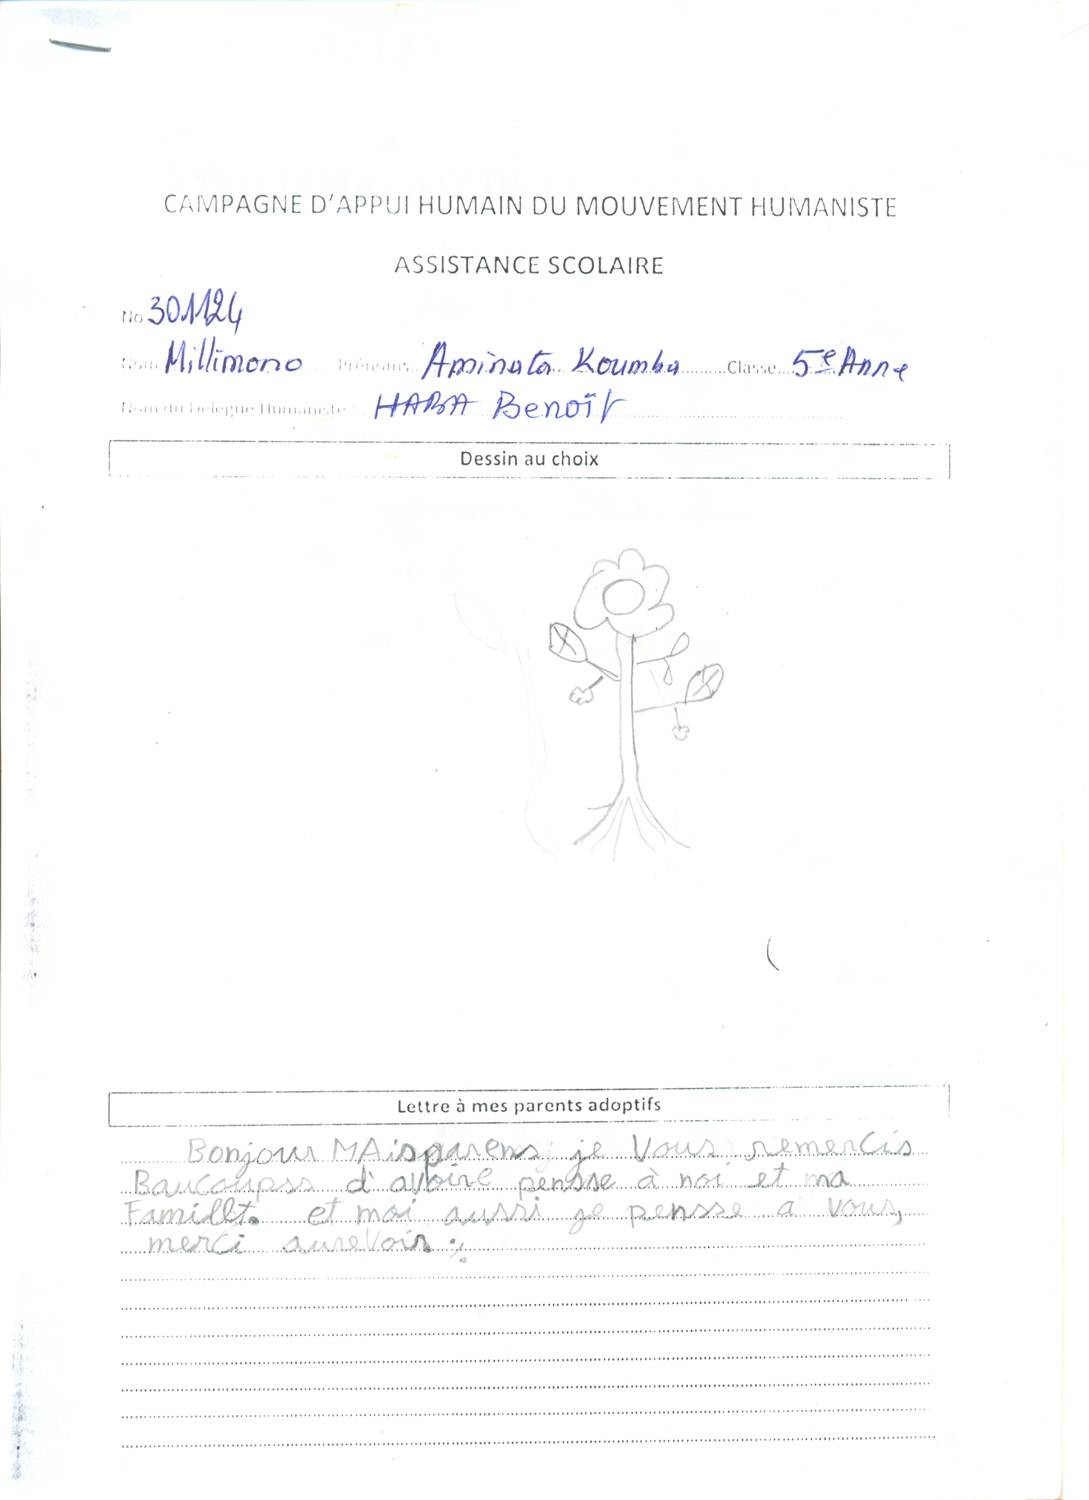 CAMPAGNE D'APPUI HUMAIN DU MOUVEMENT HUMANISTE
ASSISTANCE SCOLAIRE
No 301124
Nom Millimono Prénoms Aminata Koumba Classe 5e Anne
Nom du Délégué Humaniste HABA Benoît
Dessin au choix
Lettre à mes parents adoptifs
Bonjour MAis parens je Vous remercis
Baucoupss d'avoire pensse à noi et ma
Famillt. et moi aussi je pensse a vous,
merci aurevoir